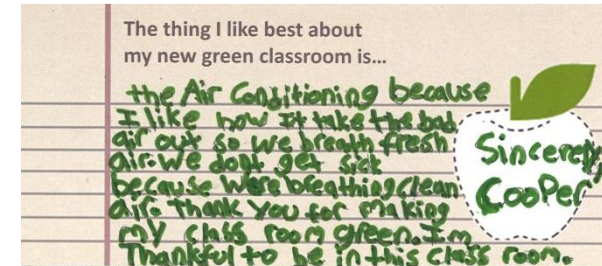 The thing I like best about
my new green classroom is...
the Air Conditioning because
I like how It take the bad
air out so we breath fresh
air. We dont get sick
because Were breathing clean
air. Thank You for making
my class room green. I'm
Thankful to be in this class room.
Sincerely
Cooper